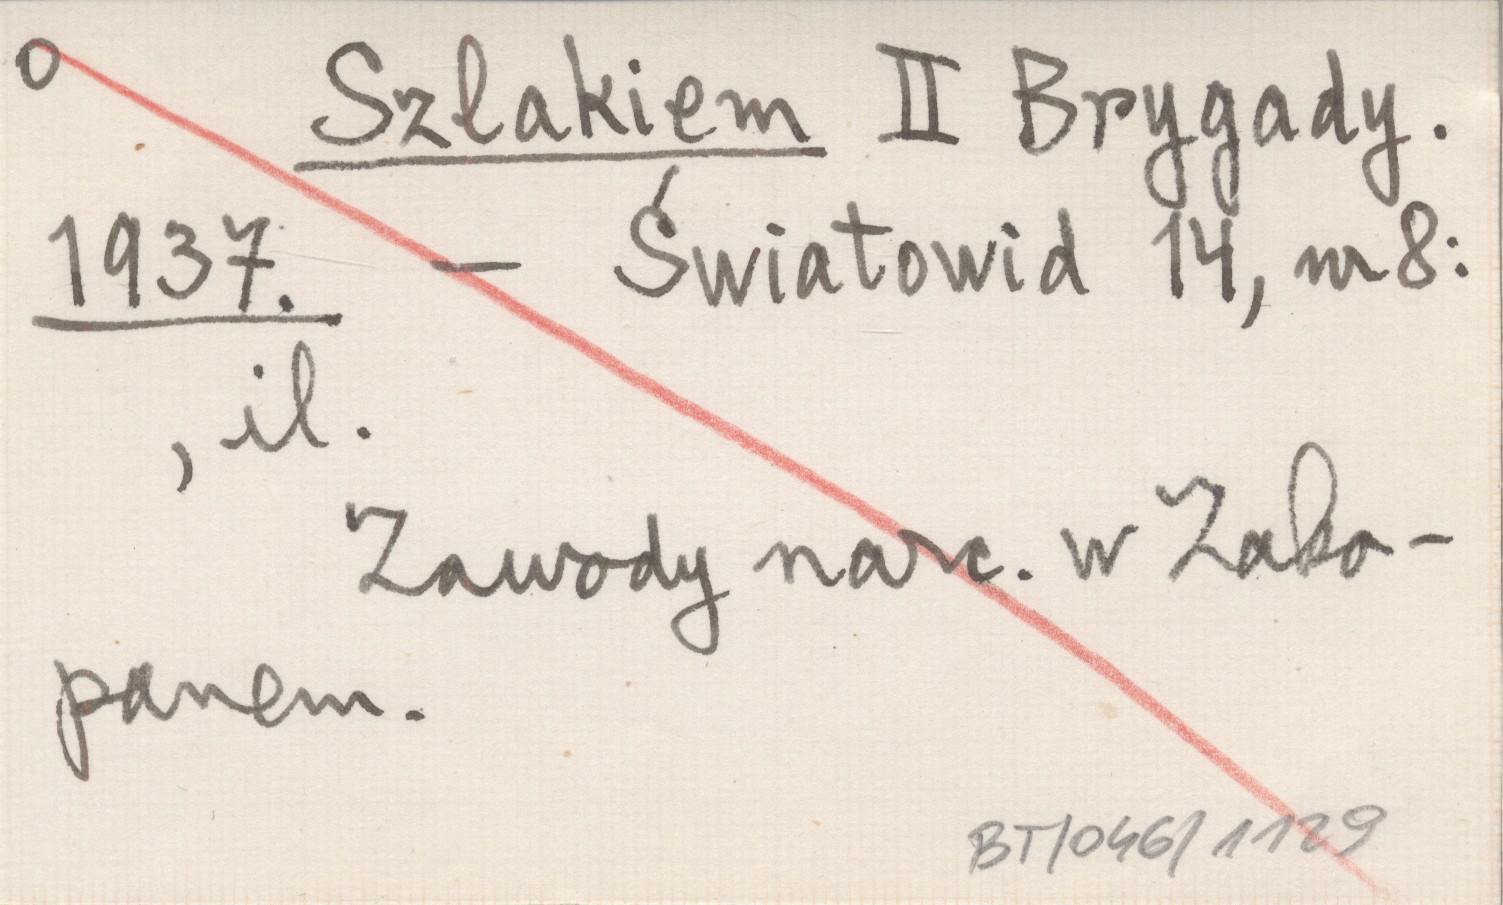 O
Szlakiem II Brygady.
1937. — Światowid 14, nr 8:
, il.
Zawody narc. w Zako-
panem.
BT/046/1129